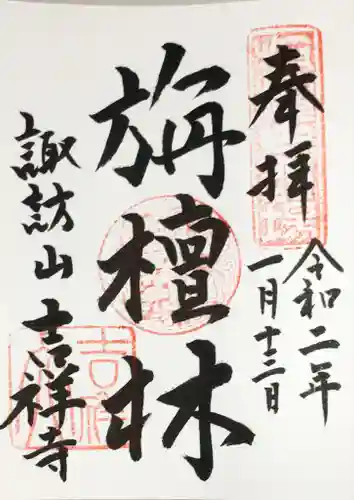 奉拝
令和二年
一月十三日
旃檀林
諏訪山 吉祥寺